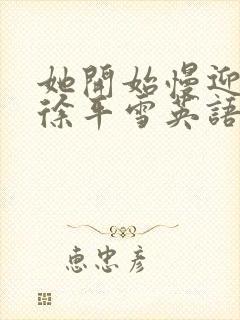 她開始慢迎
徐平雪英語
惠忠彦